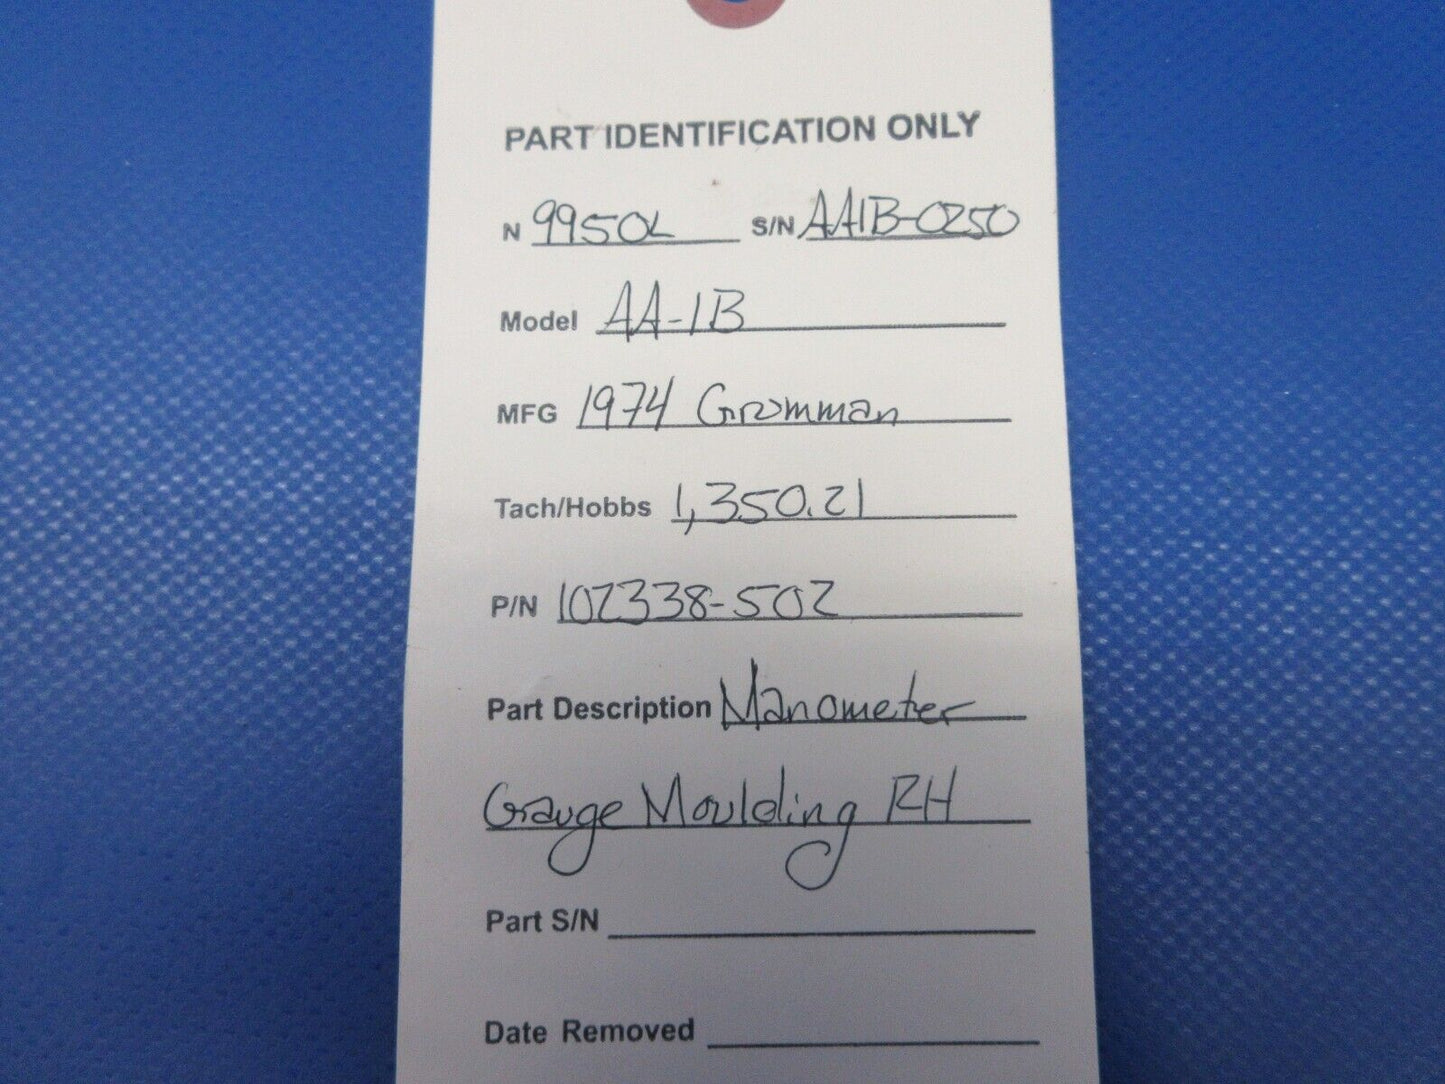 PART IDENTIFICATION ONLY
N 9950L S/N AA1B-0250
Model AA-1B
MFG 1974 Grumman
Tach/Hobbs 1,350.21
P/N 102338-502
Part Description Manometer
Gauge Moulding RH
Part S/N
Date Removed